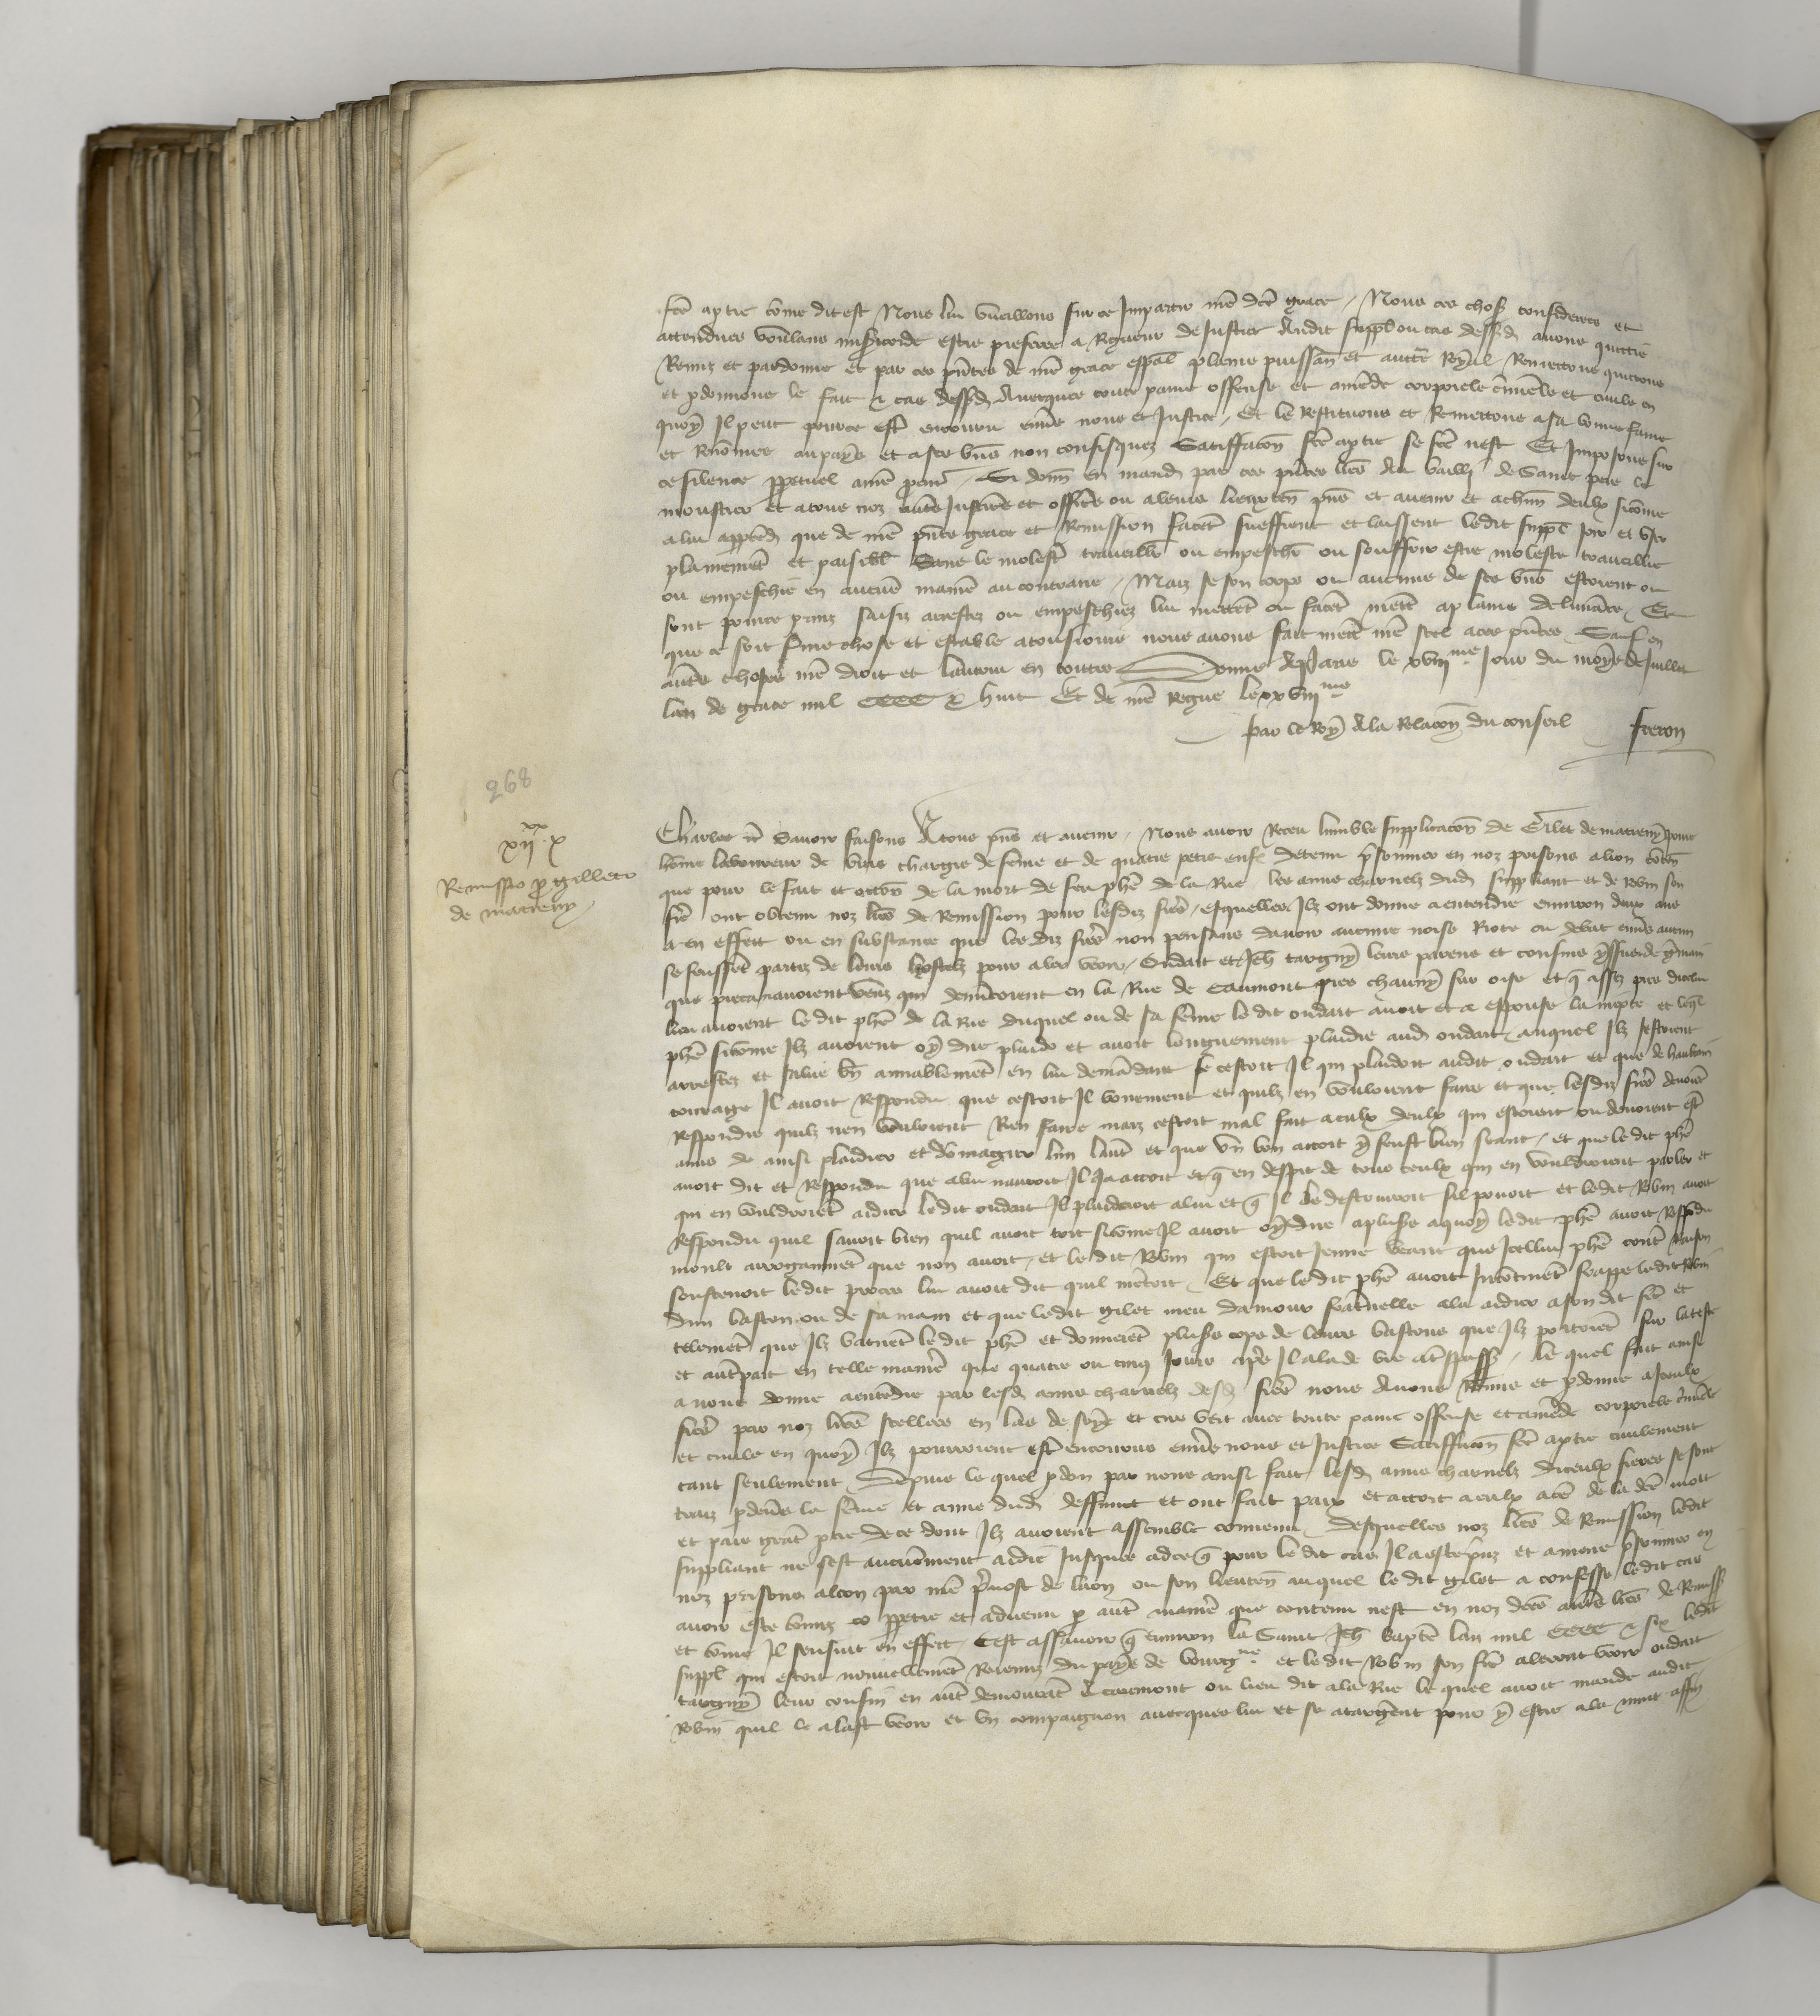 fce aptie come dit est Nous lui vueillons sur ce Impartir nre dce grace / Nous ces choses considerees et
attendues voulans misericorde estre preferee a Rigueur de Justice Audit suppl ou cas dessusd avons quictie
Remis et pardonne et par ces pntes de nre grace espal plaine puissan et aucte Royal Remettons quictons
et pdonnons le fait et cas dessusd Avecques toute paine offense et amende corporele cminele et civile en
quoy Il peut pource estre encouru envers nous et Justice / Et le Restituons et Remettons a sa bonne fame
et Renomee au pays et a ses biens non confisquez Satiffacon fce aptie se fce nest Et Imposons sur
ce silence ppetuel a nre pcur / Si donn en mand par ces pntes lres Au bailli de Saint pere le
moustier et a tous noz autres Justiciers et officiers ou a leurs lieuxten pns et avenir et a chun deulx sicome
a lui appartend que de nre pnte grace et Remission facent sueffrent et laissent ledit suppl Joir et user
plainement et paisibl Sans le molester travaillier ou empeschier ou souffrir estre moleste travaillie
ou empeschie en aucune maniere au contraire / Mais se son corps ou aucuns de ses biens estoient ou
sont pource prins saisiz arrestez ou empeschiez lui mettent ou facent mettre a plaine delivrance / Et
que ce soit ferme chose et estable a tousiours nous avons fait mettre nre scel a ces pntes Sauf en
autres choses nre droit et lautrui en toutes Donne A Paris le xviii me Jour du moys de Juillet
lan de grace mil CCCC et huit Et de nre Regne le xxviii me
Par le Roy A la Relacon du conseil freron
268
xii xx x
Remissio p gilleto
de marreny
Charles etc Savoir faisons A tous pns et avenir / Nous avoir Receu lumble supplicacon de Gilet de marreny povre
home laboureur de bras chargie de feme et de quatre petis enfans detenu prsonnier en noz prisons a lion conten
que pour le fait et occon de la mort de feu phe de la Rue / les amis charnelz dud suppliant et de Robin son
frere ont obtenu noz lres de Remission pour lesdiz freres / esquelles Ilz ont donne a entendre environ deux ans
a en effect ou en substance que les diz freres non pensans davoir aucune noise Riote ou debat envers aucun
se feussent partiz de leurs hostelz pour aler veoir / Oudart et Jeh targny leurs parens et cousins
que pieca navoient veuz qui demouroient en la Rue de Caumont pres chauny sur oise et que assez pres dicelui
lieu avoient le dit phe de la Rue duquel ou de sa feme le dit oudart avoit et a espouse la niepce et leql
phe sicome Ilz avoient oy dire plaidoit et avoit longuement plaidie aud oudart / auquel Ilz sestoient
arrestez et salue bn amiablement en lui demandant se cestoit Il qui plaidoit audit oudart et que de haultain
couraige Il avoit Respondu que cestoit Il voirement et quilz en vouloient faire et que lesdiz freres avoient
Respondre quilz nen vouloient Rien faire mais cestoit mal fait a eulx deulx qui estoient ou devoient estre
amis de ainsi plaidier et domagier lun lautre et que un bon accort y feust bien seant / et que le dit phe
avoit dit et Respondu que a lui navroit Il Ja accort et que en despit de tous ceulx qui en vouldroient parler et
qui en vouldroient aidier ledit oudart Il plaideroit a lui et que Il le destruiroit sil povoit et ledit Robin avoit
Respondu quil savoit bien quil avoit tort sicome Il avoit oy dire a plusrs a quoy ledit phe avoit Respondu
moult arrogamment que non avoit / et le dit Robin qui estoit Jeune veant que Icellui phe contre raison
soustenoit ledit proces lui avoit dit quil mentoit / Et que le dit phe avoit Incontinent frappe ledit Robin
dun baston ou de sa main et que ledit gilet meu damour fraternelle ala aidier a son dit frere et
telement que Ilz batirent le dit phe et donnerent plusrs cops de leurs bastons que Ilz portoient sur la teste
et autrepart en telle maniere que quatre ou cinq Jours apres Il ala de vie a trespassement / le quel fait ainsi
a nous donne a entendre par lesd amis charnelz desd freres nous Avons Remis et pdonne a Iceulx
freres par noz lres scellees en las de soye et cire vert avec toute paine offense et amende corporele cminele
et civile en quoy Ilz pourroient estre encourus envers nous et Justice Satiffacon fce aptie civilement
tant seulement / Depuis le quel pdon par nous ainsi fait lesd amis charnelz diceulx freres se sont
traiz pdevers la feme et amis dud deffunct et ont fait paix et accort a eulx a cause de la dce mort
et paie grant ptie de ce dont Ilz avoient assemble convenu / Desquelles noz lres de Remission ledit
suppliant ne sest aucunement aidie Jusques ad ce que pour le dit cas Il a este prins et amene prsonnier en
noz prisons a lion par nre prevost de lion ou son lieuten auquel le dit gilet a confesse ledit cas
avoir este commis ppetre et advenu p autre maniere que contenu nest en noz dces autres lres de Remission
et come Il sensuit en effect / Cest assavoir que environ la Saint Jeh baptre lan mil CCCC et six ledit
suppl qui estoit nouvellement Revenu du pays de bourgne et le dit Robin son frere alerent veoir oudart
targny leur cousin en autre demourant a caumont ou lieu dit a la Rue le quel avoit mande audit
Robin quil le alast veoir et un compaignon avecques lui et se atargent pour y estre a la nuit affin